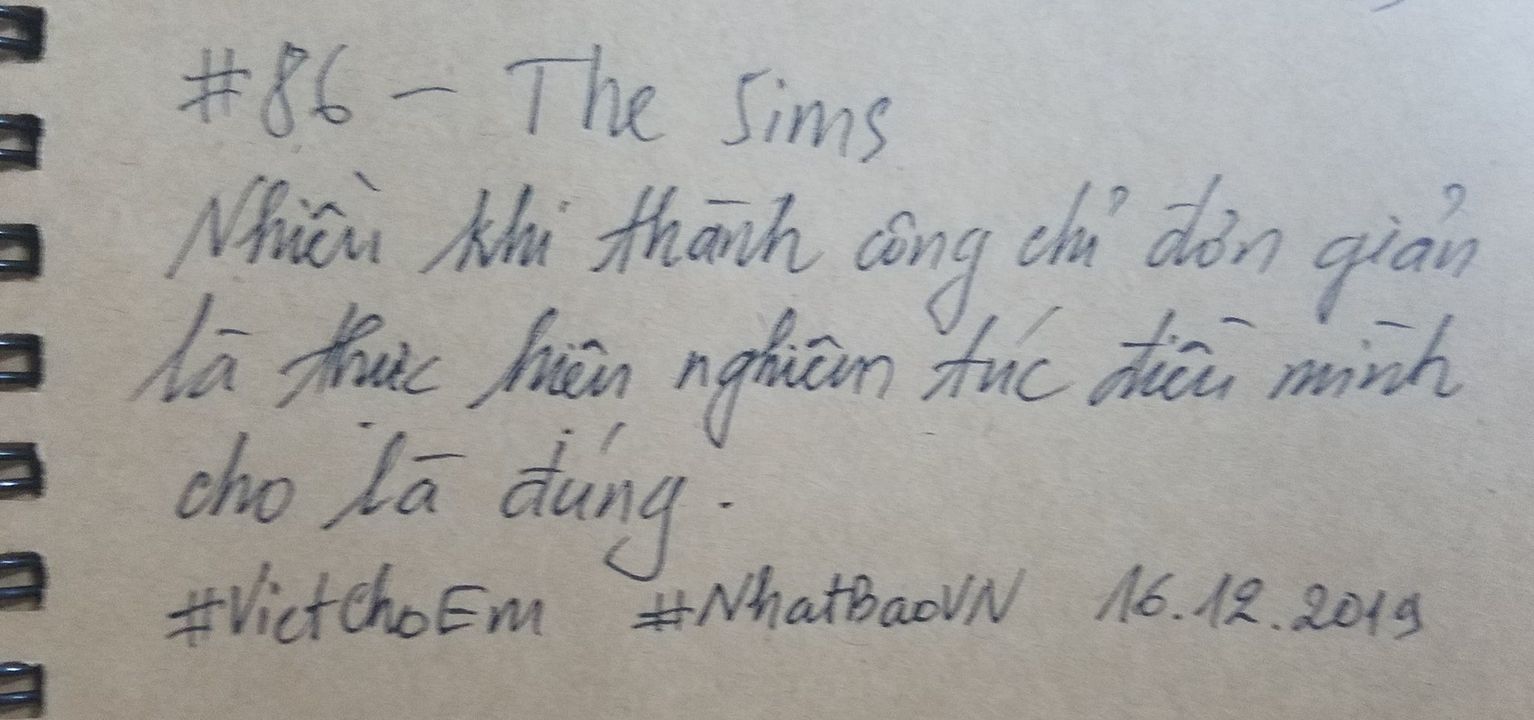 #86 - The Sims
Nhiều khi thành công chỉ đơn giản
là thực hiện nghiêm túc điều mình
cho là đúng.
#VietChoEm #NhatBaoVN 16.12.2019